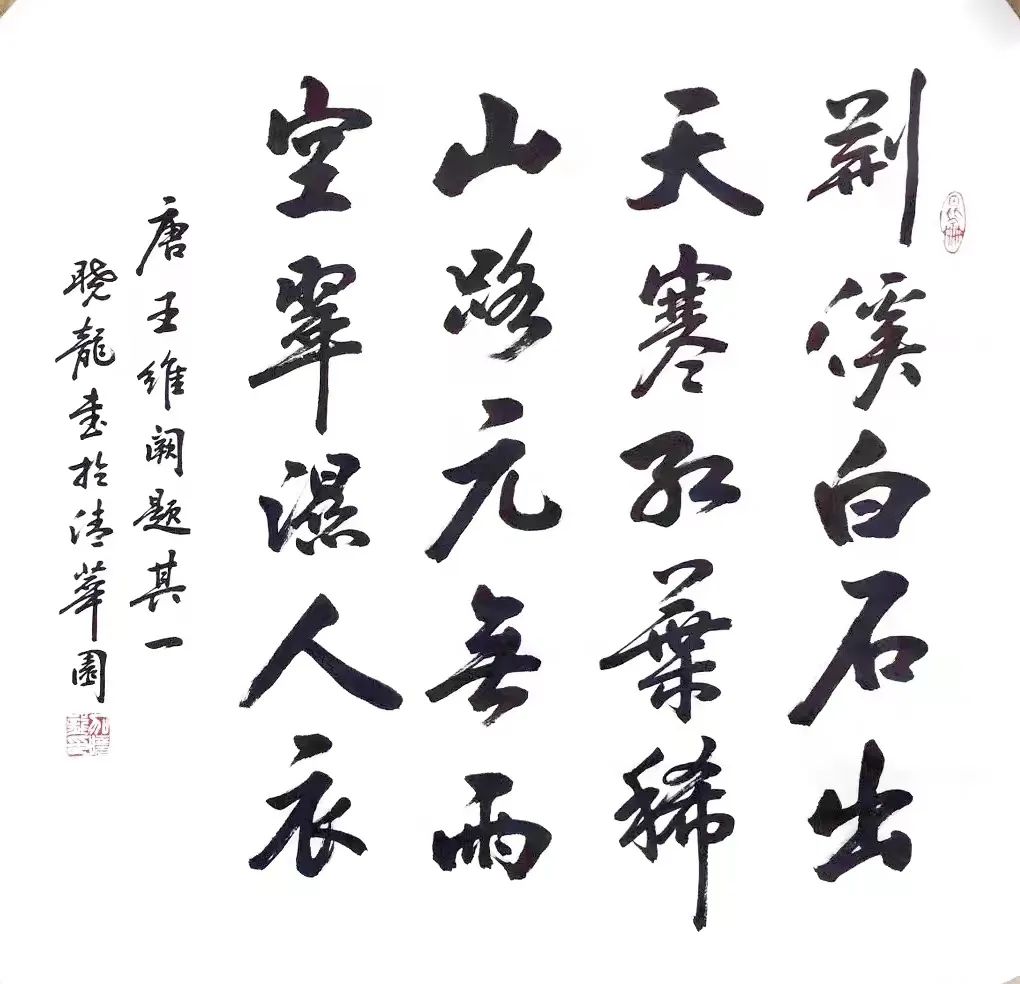 荆溪白石出
天寒紅葉稀
山路元無雨
空翠濕人衣
唐王維阙题其一
曉龍書於清華園